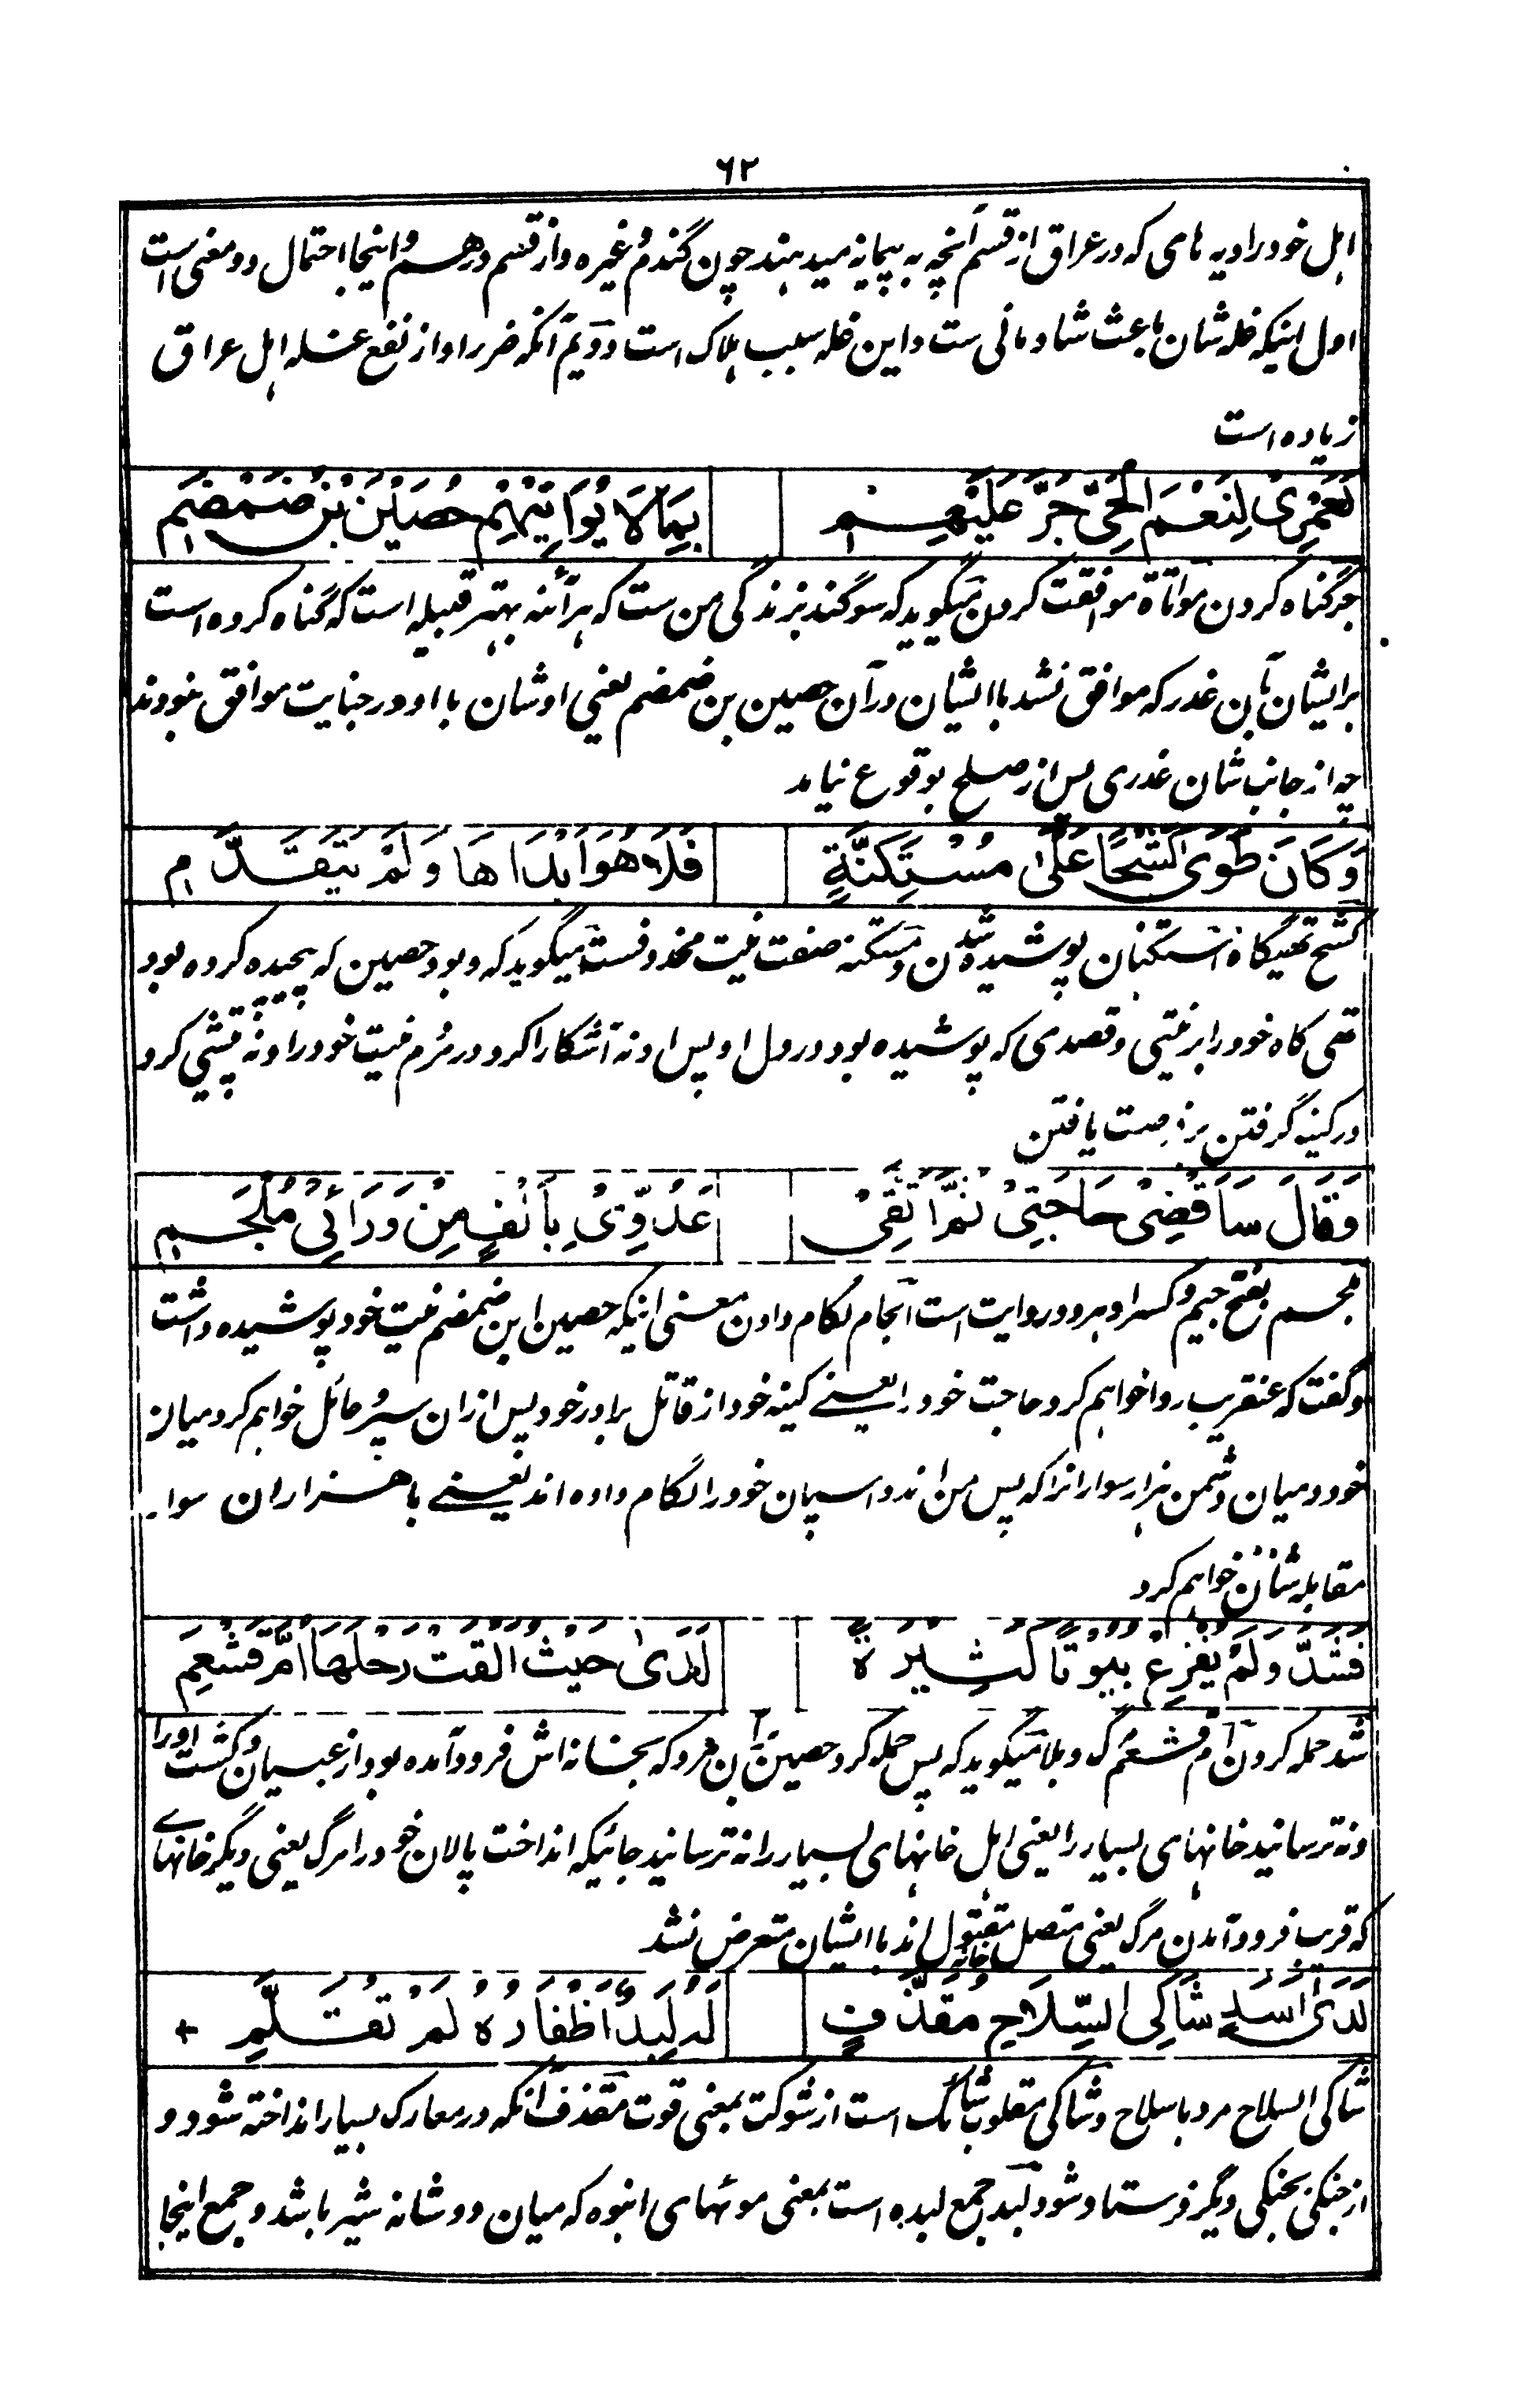 ٦٢
اہل خود را دیہ ہای کہ در عراق از قسم آنچہ بہ پیمانہ میدہند چون گندم و غیرہ و از قسم درہم و اینجا احتمال دو معنی است
اول اینکہ غلہ شان باعث شادمانی ست و این غلہ سبب ہلاک است دویم آنکہ ضرر او از نفع غلہ اہل عراق
زیادہ است
لَعَمْرِیْ لَنِعْمَ الْحَیُّ جَرَّ عَلَیْهِمِ
بِمَا لَا یُوَاتِیْهِمْ حُصَیْنُ بْنُ ضَمْضَمِ
جر گناہ کردن مواتاة موافقت کردن میگوید کہ سوگند بزندگی من ست کہ ہر آئنہ بہتر قبیلہ است کہ گناہ کردہ است
بر ایشان بآن غدر کہ موافق نشد با ایشان در آن حصین بن ضمضم یعنی اوشان با او در جنایت موافق نبودند
چہ از جانب شان غدری پس از صلح بوقوع نیامد
وَکَانَ طَوٰی کَشْحًا عَلٰی مُسْتَکِنَّةٍ
فَلَا هُوَ اَبْدَاهَا وَلَمْ یَتَقَدَّمِ
کشح تہیگاہ استکنان پوشیدہ شدن و مستکنہ صفت نیت محذوفست میگوید کہ و بود حصین کہ پیچیدہ کردہ بود
تہی گاہ خود را بر نیتی و قصدی کہ پوشیدہ بود در دل او پس او نہ آشکارا کرد در مردم نیت خود را و نہ پیشی کرد
در کینہ گرفتن بر فرصت یافتن
وَقَالَ سَاَقْضِیْ حَاجَتِیْ ثُمَّ اَتَّقِیْ
عَدُوِّیْ بِاَلْفٍ مِنْ وَرَائِیَ مُلْجَمِ
ملجم بفتح جیم و کسر او ہر دو روایت است الجام لگام دادن معنی اینکہ حصین ابن ضمضم نیت خود پوشیدہ داشت
و گفت کہ عنقریب روا خواہم کرد حاجت خود را یعنے کینہ خود از قاتل برادر خود پس ازان سپر و حائل خواہم کرد میان
خود و میان دشمن ہزار سوار انرا کہ پس من اند و اسپان خود را لگام دادہ اند یعنے با ہزاران سوار
مقابلہ شان خواہم کرد
فَشَدَّ وَلَمْ یُفْزِعْ بُیُوْتًا کَثِیْرَةً
لَدٰی حَیْثُ اَلْقَتْ رَحْلَهَا اُمُّ قَشْعَمِ
شد حملہ کردن ام قشعم مرگ و بلا میگوید کہ پس حملہ کرد حصین بر آن مرد کہ بخانہ اش فرود آمدہ بود از عبسیان و کشت او را
و نہ ترسانید خانہای بسیار را یعنی اہل خانہای بسیار را نہ ترسانید جائیکہ انداخت پالان خود را مرگ یعنی دیگر خانہای
کہ قریب فرود آمدن مرگ یعنی متصل خانہ مقتول اند با ایشان متعرض نشد
لَدٰی اَسَدٍ شَاکِی السِّلَاحِ مُقَذَّفٍ
لَهٗ لِبَدٌ اَظْفَارُهٗ لَمْ تُقَلَّمِ +
شاکی السلاح مرد با سلاح و شاکی مقلوب شائک است از شوکت بمعنی قوت مقذف آنکہ در معارک بسیار انداختہ شود و
از جنگی بجنگی دیگر فرستادہ شود لبد جمع لبدہ است بمعنی موئہای انبوہ کہ میان دو شانہ شیر باشد و جمع اینجا